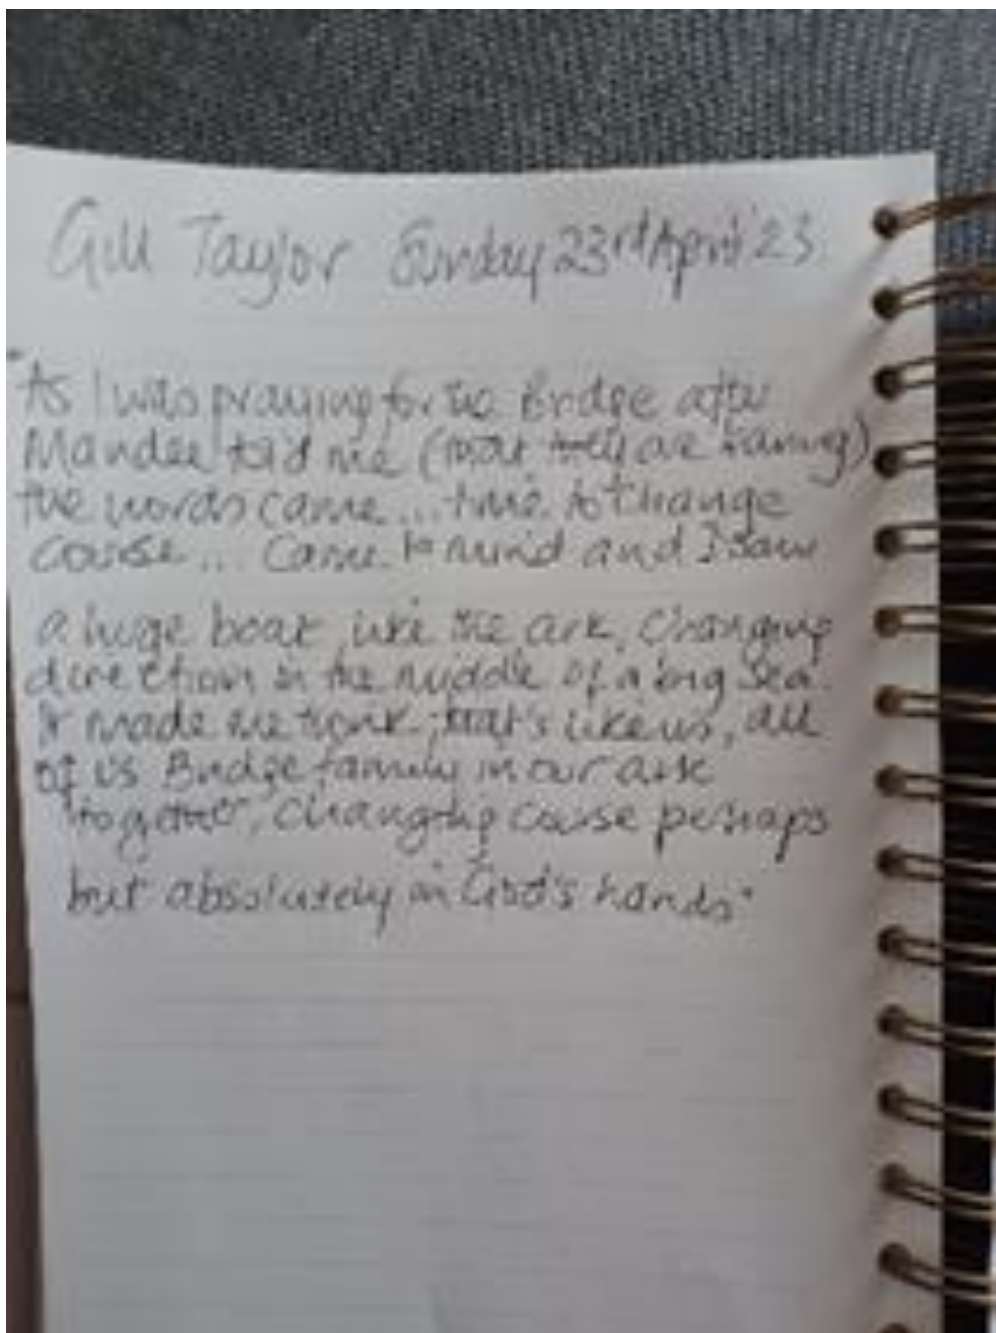 Gill Taylor Sunday 23rd April '23
"As I was praying for the Bridge after
Mandee told me (that they are leaving)
the words came... time to change
course... came to mind and I saw
a huge boat, like the ark, changing
direction in the middle of a big sea.
It made me think, that's like us, all
of us Bridge family in our ark
together, changing course perhaps
but absolutely in God's hands"